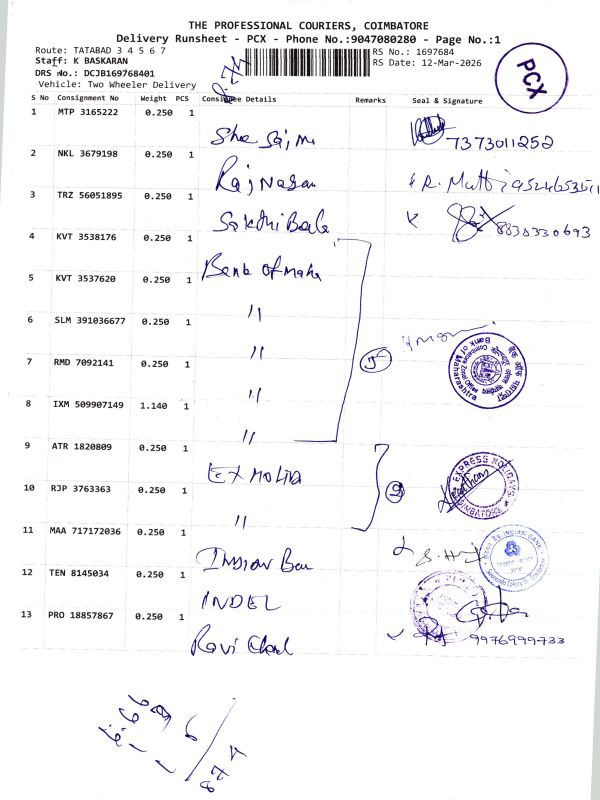 THE PROFESSIONAL COURIERS, COIMBATORE
Delivery Runsheet - PCX - Phone No.:9047080280 - Page No.:1
Route: TATABAD 3 4 5 6 7 RS No.: 1697684
Staff: K BASKARAN RS Date: 12-Mar-2026
DRS No.: DCJB169768401
Vehicle: Two Wheeler Delivery
PCX
S No Consignment No Weight PCS Consignee Details Remarks Seal & Signature
1 MTP 3165222 0.250 1
7373011252
2 NKL 3679198 0.250 1
Raj Nagan
3 TRZ 56051895 0.250 1
Sakthi Bala 8838330693
4 KVT 3538176 0.250 1
Bank of maha
5 KVT 3537620 0.250 1
"
6 SLM 391036677 0.250 1
"
7 RMD 7092141 0.250 1
Bank of Maharashtra
"
8 IXM 509907149 1.140 1
"
9 ATR 1820809 0.250 1
EXPRESS HOLIDAYS
COIMBATORE
10 RJP 3763363 0.250 1
"
11 MAA 717172036 0.250 1
Indian Ban
INDIAN BANK
12 TEN 8145034 0.250 1
INDEL
13 PRO 18857867 0.250 1
Ravi 9976999733